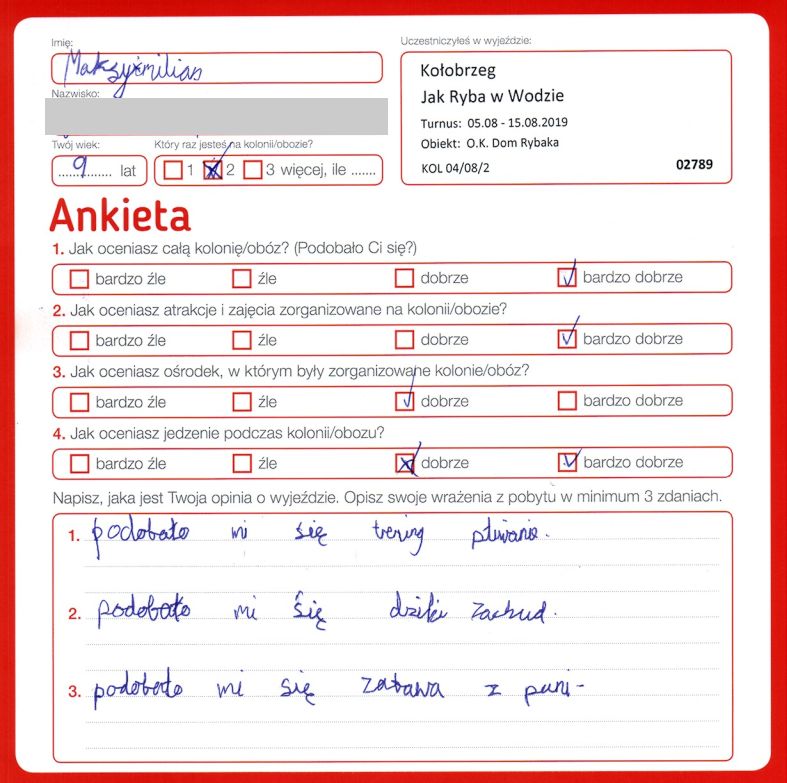 Imię:
Maksymilian
Nazwisko:
Twój wiek:
9 lat
Który raz jesteś na kolonii/obozie?
1 2 3 więcej, ile .......
Uczestniczyłeś w wyjeździe:
Kołobrzeg
Jak Ryba w Wodzie
Turnus: 05.08 - 15.08.2019
Obiekt: O.K. Dom Rybaka
KOL 04/08/2 02789
Ankieta
1. Jak oceniasz całą kolonię/obóz? (Podobało Ci się?)
bardzo źle źle dobrze bardzo dobrze
2. Jak oceniasz atrakcje i zajęcia zorganizowane na kolonii/obozie?
bardzo źle źle dobrze bardzo dobrze
3. Jak oceniasz ośrodek, w którym były zorganizowane kolonie/obóz?
bardzo źle źle dobrze bardzo dobrze
4. Jak oceniasz jedzenie podczas kolonii/obozu?
bardzo źle źle dobrze bardzo dobrze
Napisz, jaka jest Twoja opinia o wyjeździe. Opisz swoje wrażenia z pobytu w minimum 3 zdaniach.
1. podobało mi się trening pływania.
2. podobało mi się dziki zachud.
3. podobało mi się zabawa z pani-